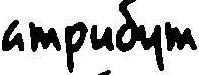 атрибут